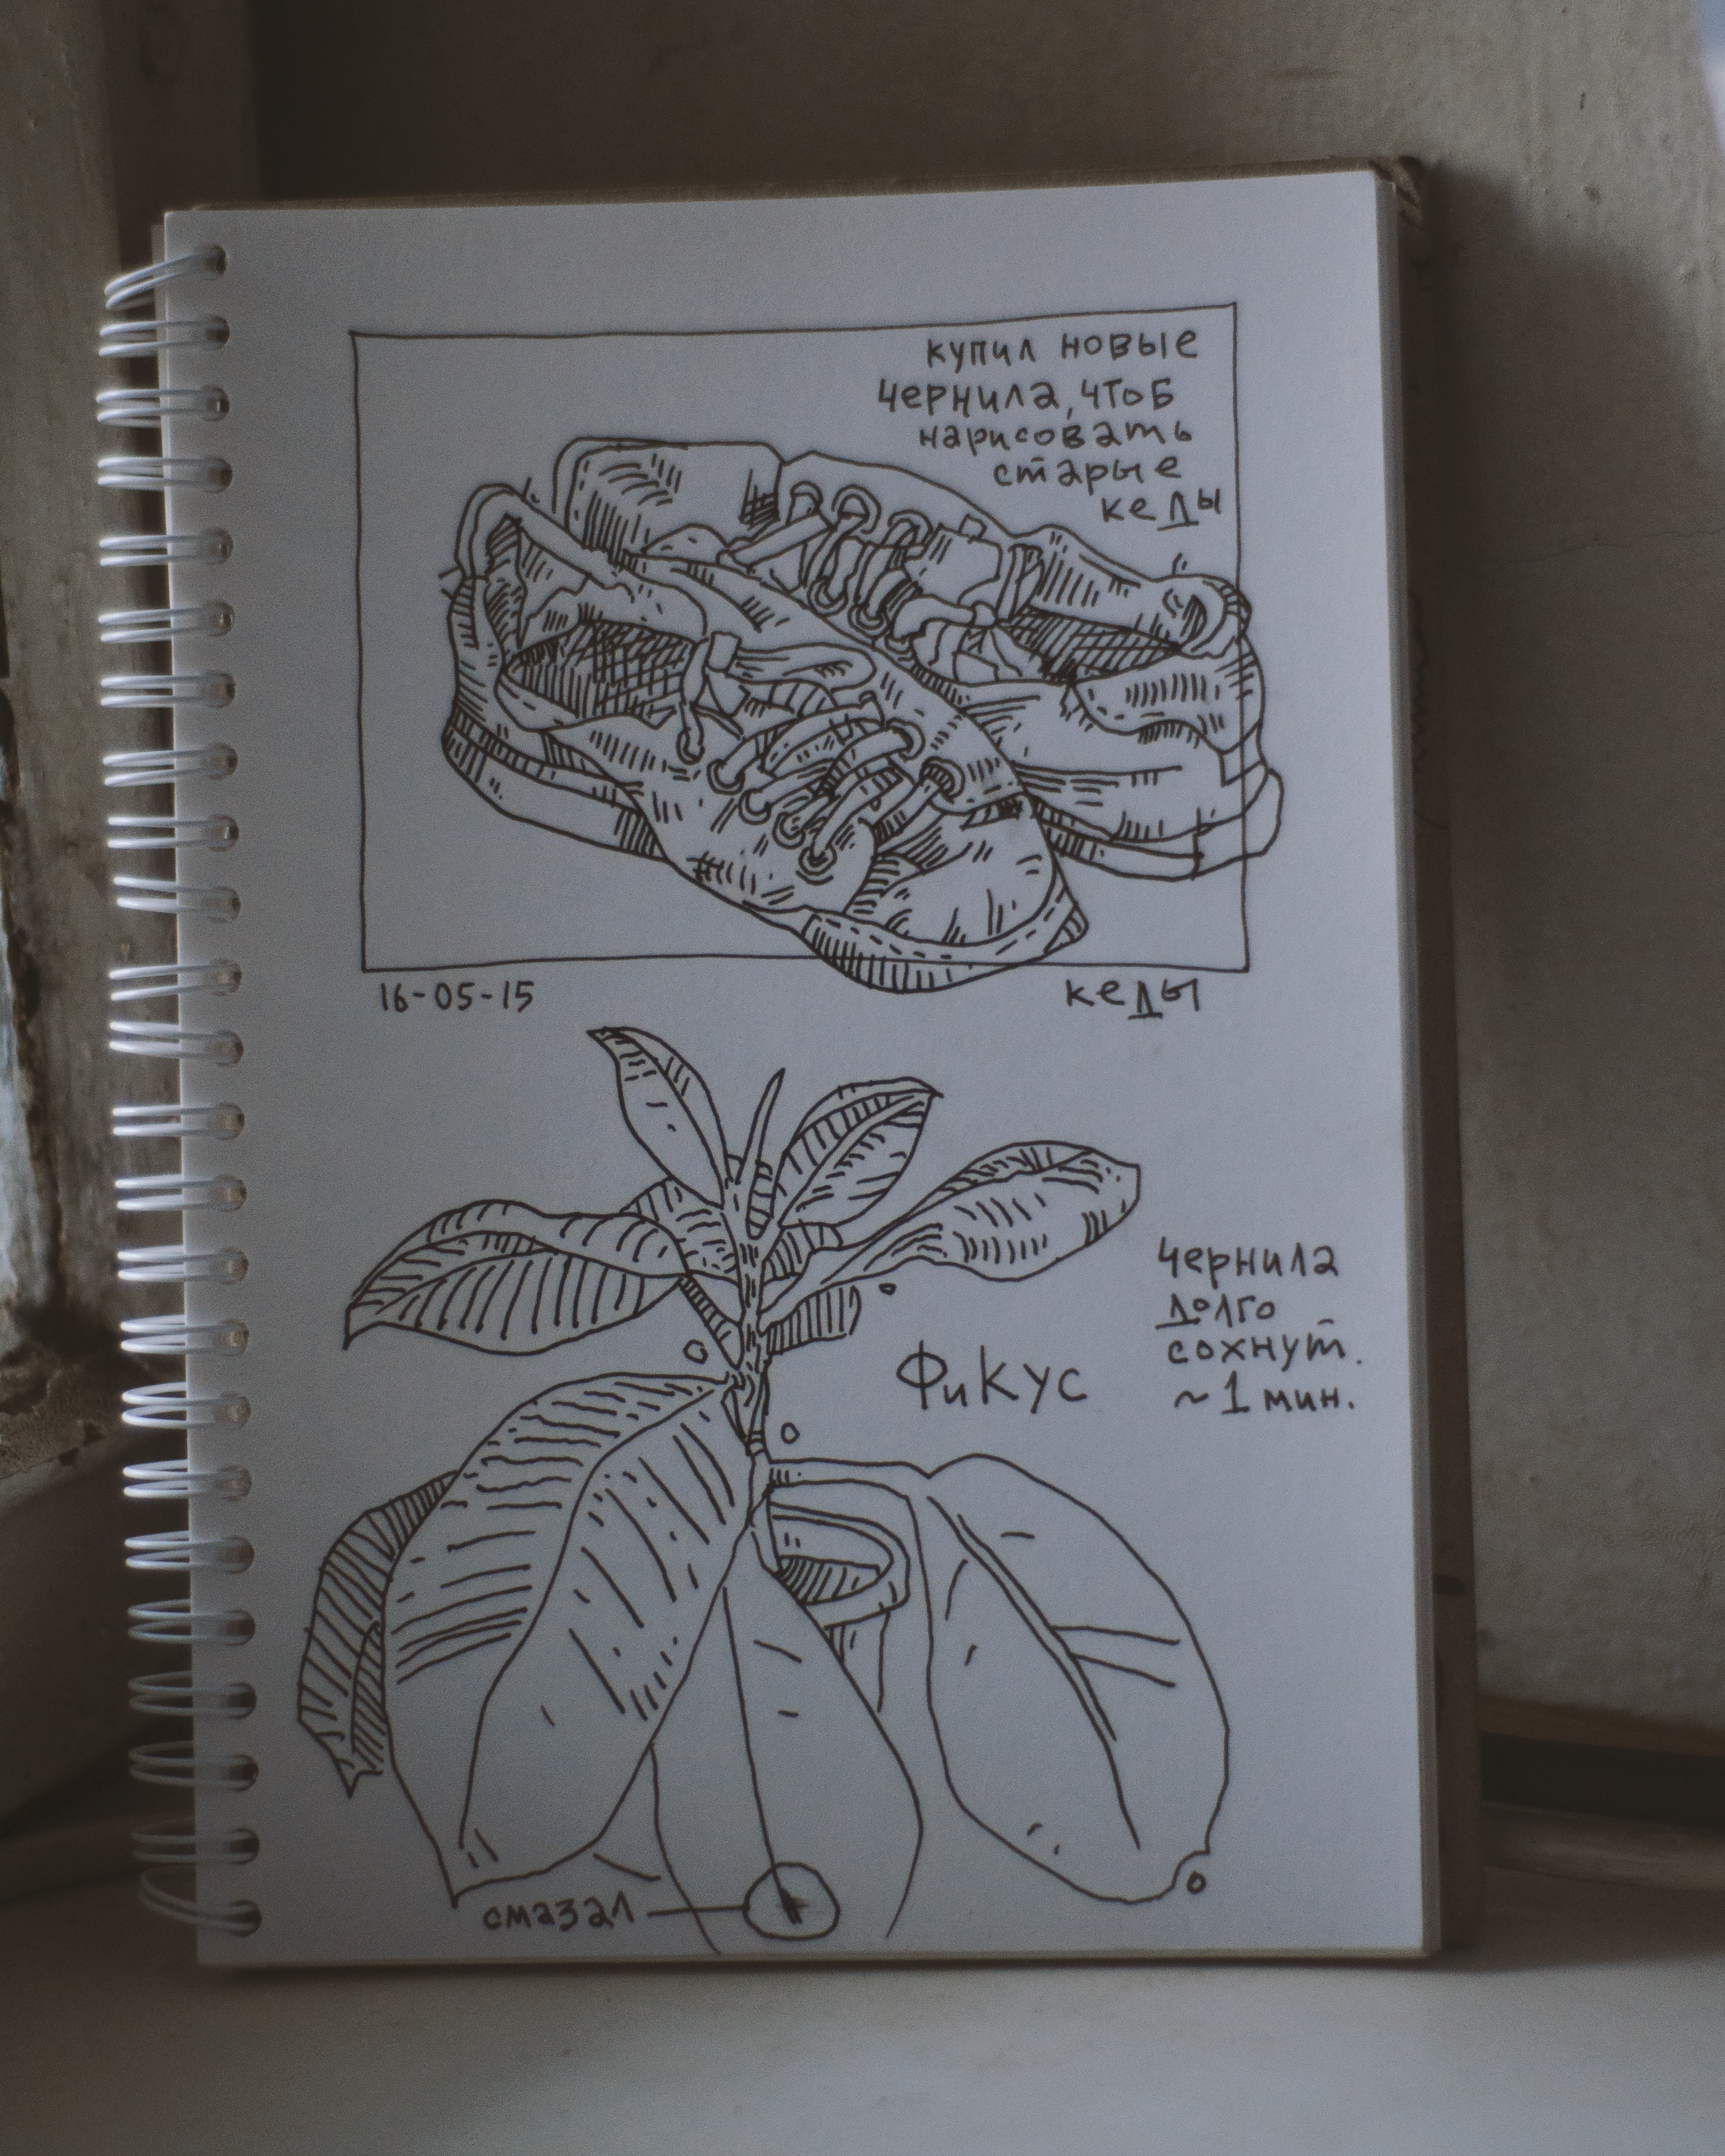 купил новые
чернила, чтоб
нарисовать
старые
кеды
16-05-15
кеды
чернила
долго
сохнут.
~1 мин.
Фикус
смазал